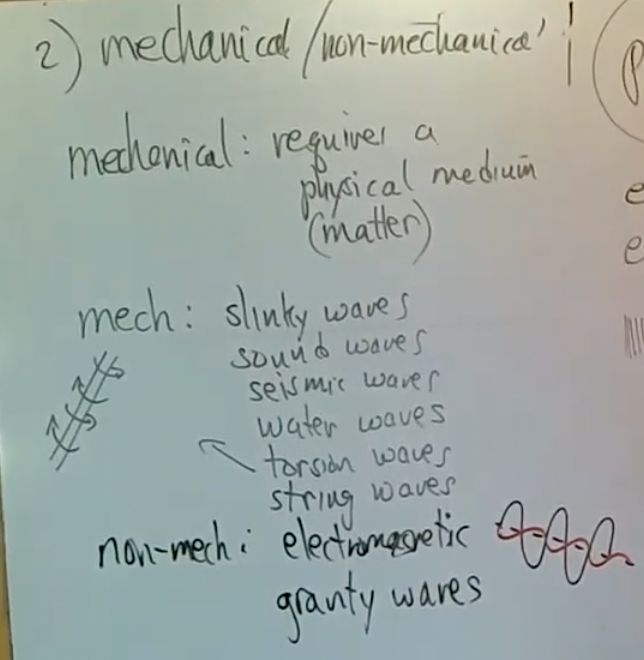 2) mechanical/non-mechanical
mechanical: requires a
physical medium
(matter)
mech: slinky waves
sound waves
seismic waves
water waves
torsion waves
string waves
non-mech: electromagnetic
gravity waves